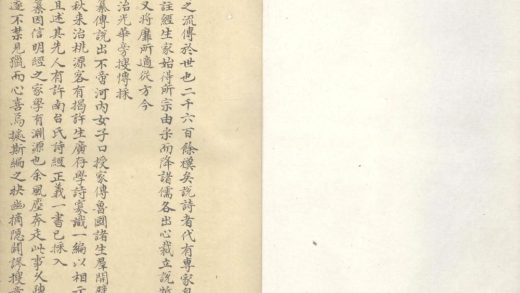 之流傳於世也二千六百餘穓矣說詩者代有專家自
註經生家始得所宗由宋而降諸儒各出心裁立說
又將靡所適從方今
治光華旁搜傳採
纂傳說出不啻河內女子口授家傳魯國諸生羣開
秋來治桃源客有揭許生廣存學詩彙識一編以相
且述其先人有許南台氏詩經正義一書已採入
纂因信明經之家學有淵源也余風塵奔走此事久
遂不禁見獵而心喜焉披斯編之抉幽摘隱闢謬搜